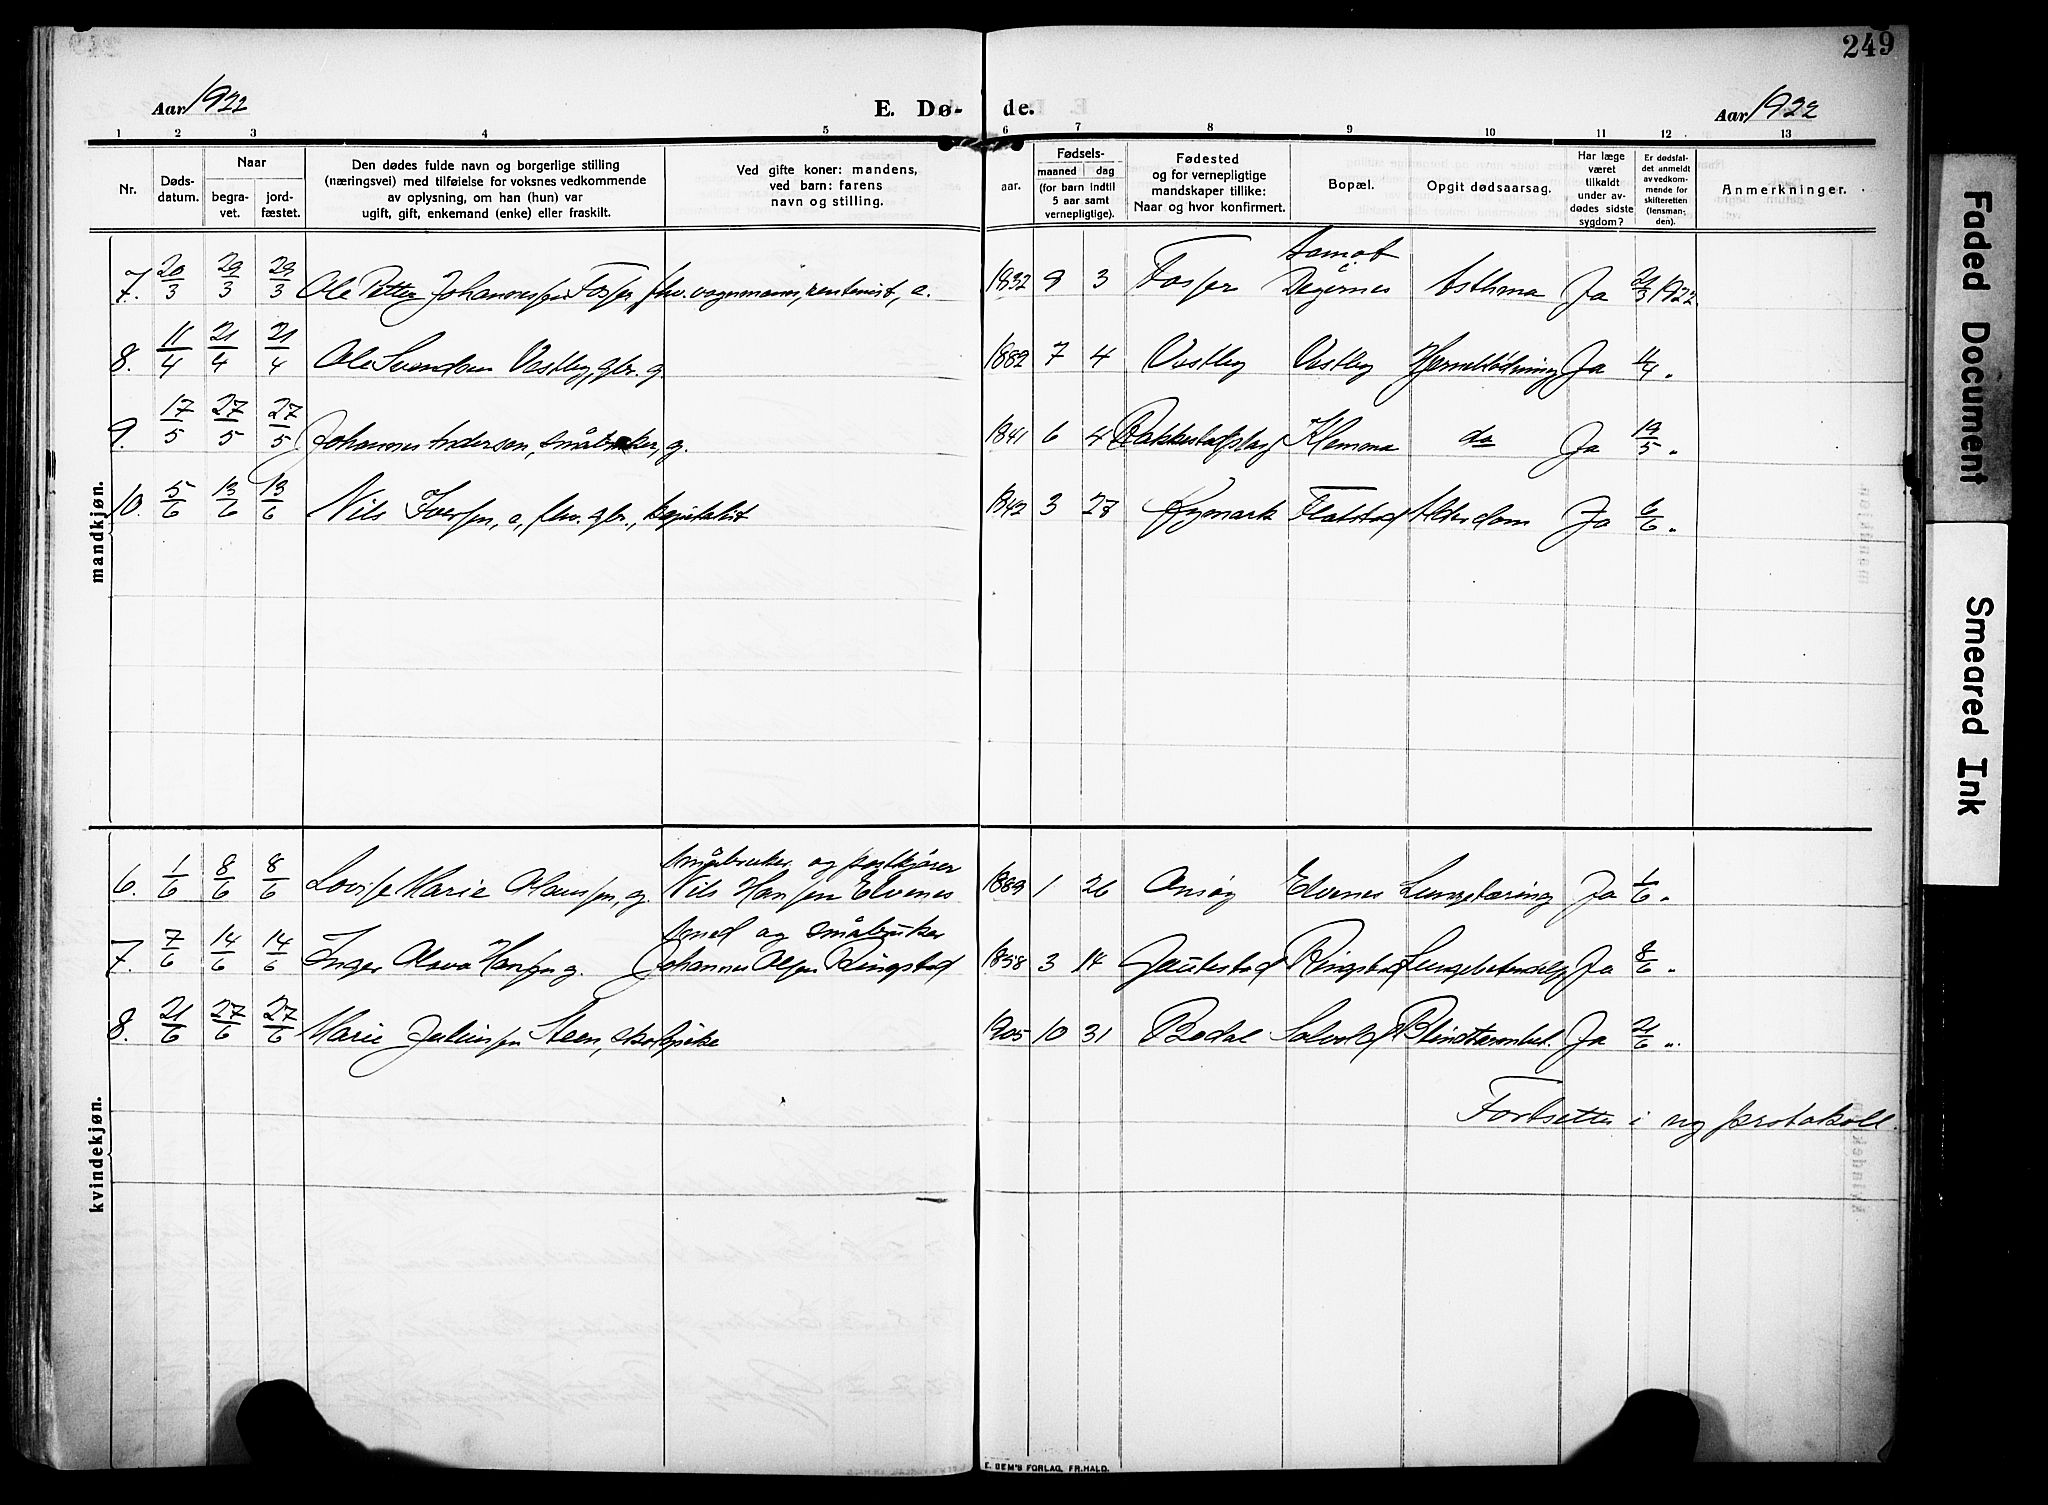 249
Aar 1922
E. Dø-
de.
Aar 1922
1 2 3 4 5 6 7 8 9 10 11 12 13
Nr.
Døds-
datum.
Naar
begra-
vet.
jord-
fæstet.
Den dødes fulde navn og borgerlige stilling
(næringsvei) med tilføielse for voksnes vedkommende
av oplysning, om han (hun) var
ugift, gift, enkemand (enke) eller fraskilt.
Ved gifte koner: mandens,
ved barn: farens
navn og stilling.
Fødsels-
aar.
maaned dag
(for barn indtil
5 aar samt
vernepligtige).
Fødested
og for vernepligtige
mandskaper tillike:
Naar og hvor konfirmert.
Bopæl.
Opgit dødsaarsag.
Har læge
været
tilkaldt
under av-
dødes sidste
sygdom?
Er dødsfal-
det anmeldt
av vedkom-
mende for
skifteretten
(lensman-
den).
Anmerkninger.
mandkjøn.
7. 20/3 29/3 29/3 Ole Petter Johannessen Fosser, fhv. vognmann, rentenist, e. 1832 9 3 Fosser Degernes Asthma Ja 1922
8. 11/4 21/4 21/4 Ole Svendsen Vestby, gbr. g. 1882 7 4 Vestby Vestby Ja
9. 17/5 27/5 27/5 Johannes Anderson, småbruker, g. 1841 6 4 Klemma do Ja 19/5 "
10. 5/6 13/6 13/6 Nils Iversen, e, fhv. gbr., kapitalist 1842 3 27 Øymark Flatstad Alderdom Ja 6/6 "
kvindekjøn.
småbruker og postkjører
6. 1/6 8/6 8/6 Lovise Marie Olaussen, g. Nils Hansen Elvenes 1889 1 26 Elvenes Lungetæring Ja 1/6 "
smed og småbruker
7. 7/6 14/6 14/6 Inger Olava Hansen g. Johannes Olsen Ringstad 1858 3 14 Gautestad Ringstad Ja 8/6 "
8. 21/6 27/6 27/6 Marie Juliussen Steen, skolepike 1905 10 31 Bodal Blindtarmbet. Ja 21/6 "
Fortsettes i ny protokoll.
E. SEM'S FORLAG, FR.HALD.
Faded Document
Smeared Ink